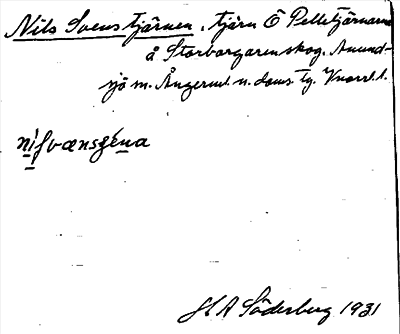 Nils Svenstjärnen, tjärn Ö Pelletjärnarna
å Storborgarenskog. Anund-
sjö m. Ångerml. n. doms. tg. V norrl. l.
H A Söderberg 1931